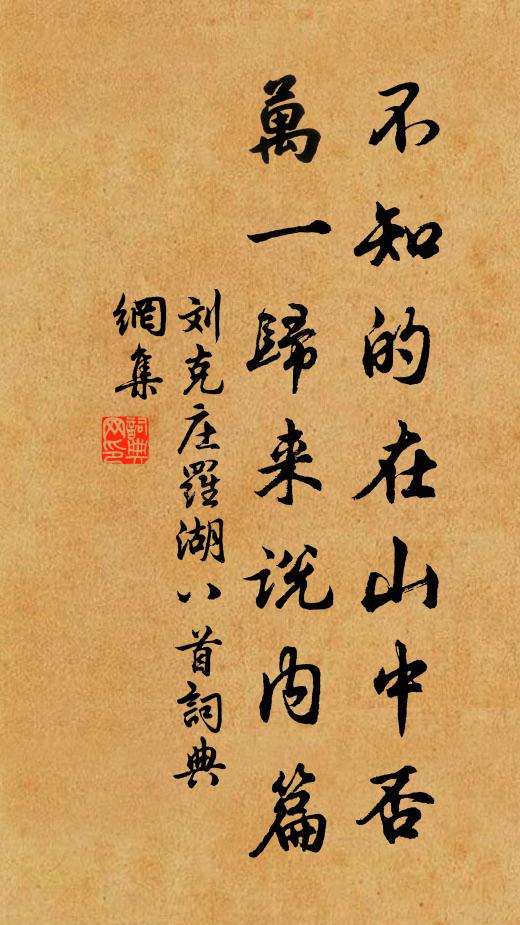 不知的在山中否
萬一歸来说内篇
刘克庄羅湖八首詞典
網集
詞典
网印